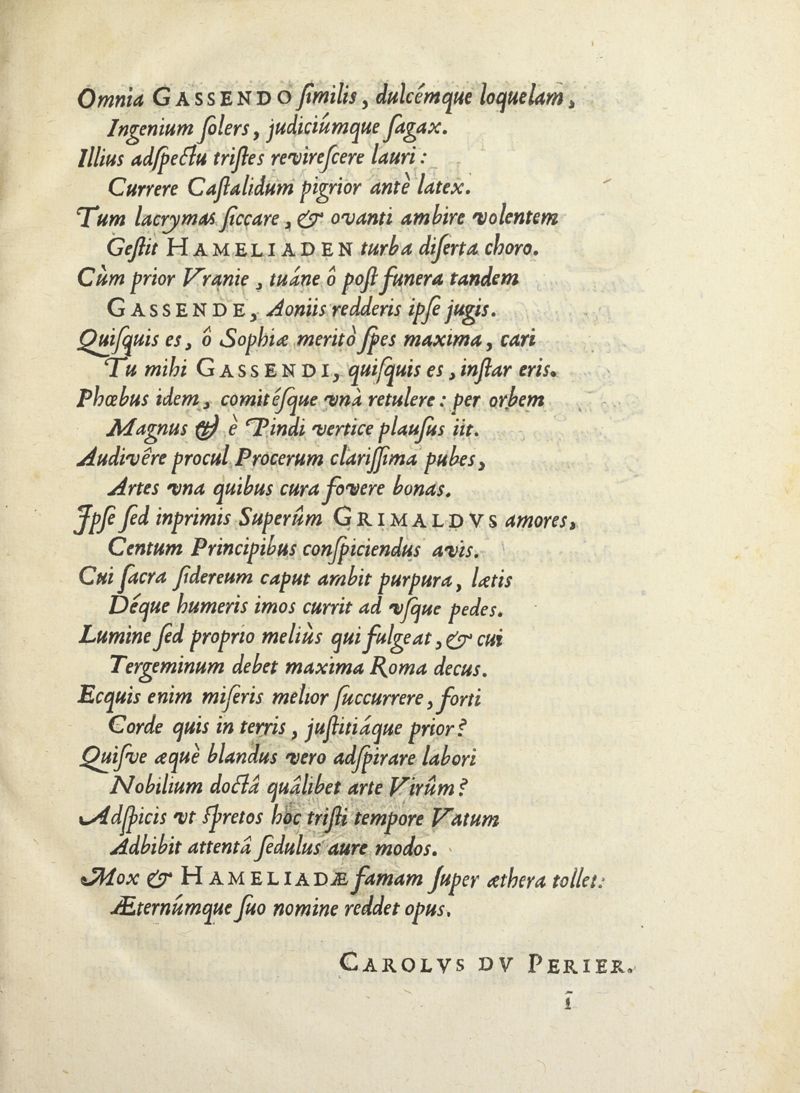 Omnia GASSENDO ſimilis, dulcémque loquelam,
Ingenium ſolers, judiciúmque ſagax.
Illius adſpectu triſtes revireſcere lauri :
Currere Caſtalidum pigrior antè latex.
Tum lacrymas ſiccare, & ovanti ambire volentem
Geſtit HAMELIADEN turba diſerta choro.
Cùm prior Vranie, tuáne ô poſt funera tandem
GASSENDE, Aoniis redderis ipſe jugis.
Quiſquis es, ô Sophiæ meritò ſpes maxima, cari
Tu mihi GASSENDI, quiſquis es, inſtar eris.
Phœbus idem, comitéſque vnà retulere : per orbem
Magnus & è Pindi vertice plauſus iit.
Audivêre procul Procerum clariſſima pubes,
Artes vna quibus cura fovere bonas.
Ipſe ſed inprimis Superûm GRIMALDVS amores,
Centum Principibus conſpiciendus avis.
Cui ſacra ſidereum caput ambit purpura, lætis
Déque humeris imos currit ad vſque pedes.
Lumine ſed proprio meliùs qui fulgeat, & cui
Tergeminum debet maxima Roma decus.
Ecquis enim miſeris melior ſuccurrere, forti
Corde quis in terris, juſtitiáque prior ?
Quiſve æquè blandus vero adſpirare labori
Nobilium doctâ quâlibet arte Virûm ?
Adſpicis vt ſpretos hoc triſti tempore Vatum
Adbibit attentâ ſedulus aure modos.
Mox & HAMELIADÆ famam ſuper æthera tollet:
Æternúmque ſuo nomine reddet opus.
CAROLVS DV PERIER.
ĩ